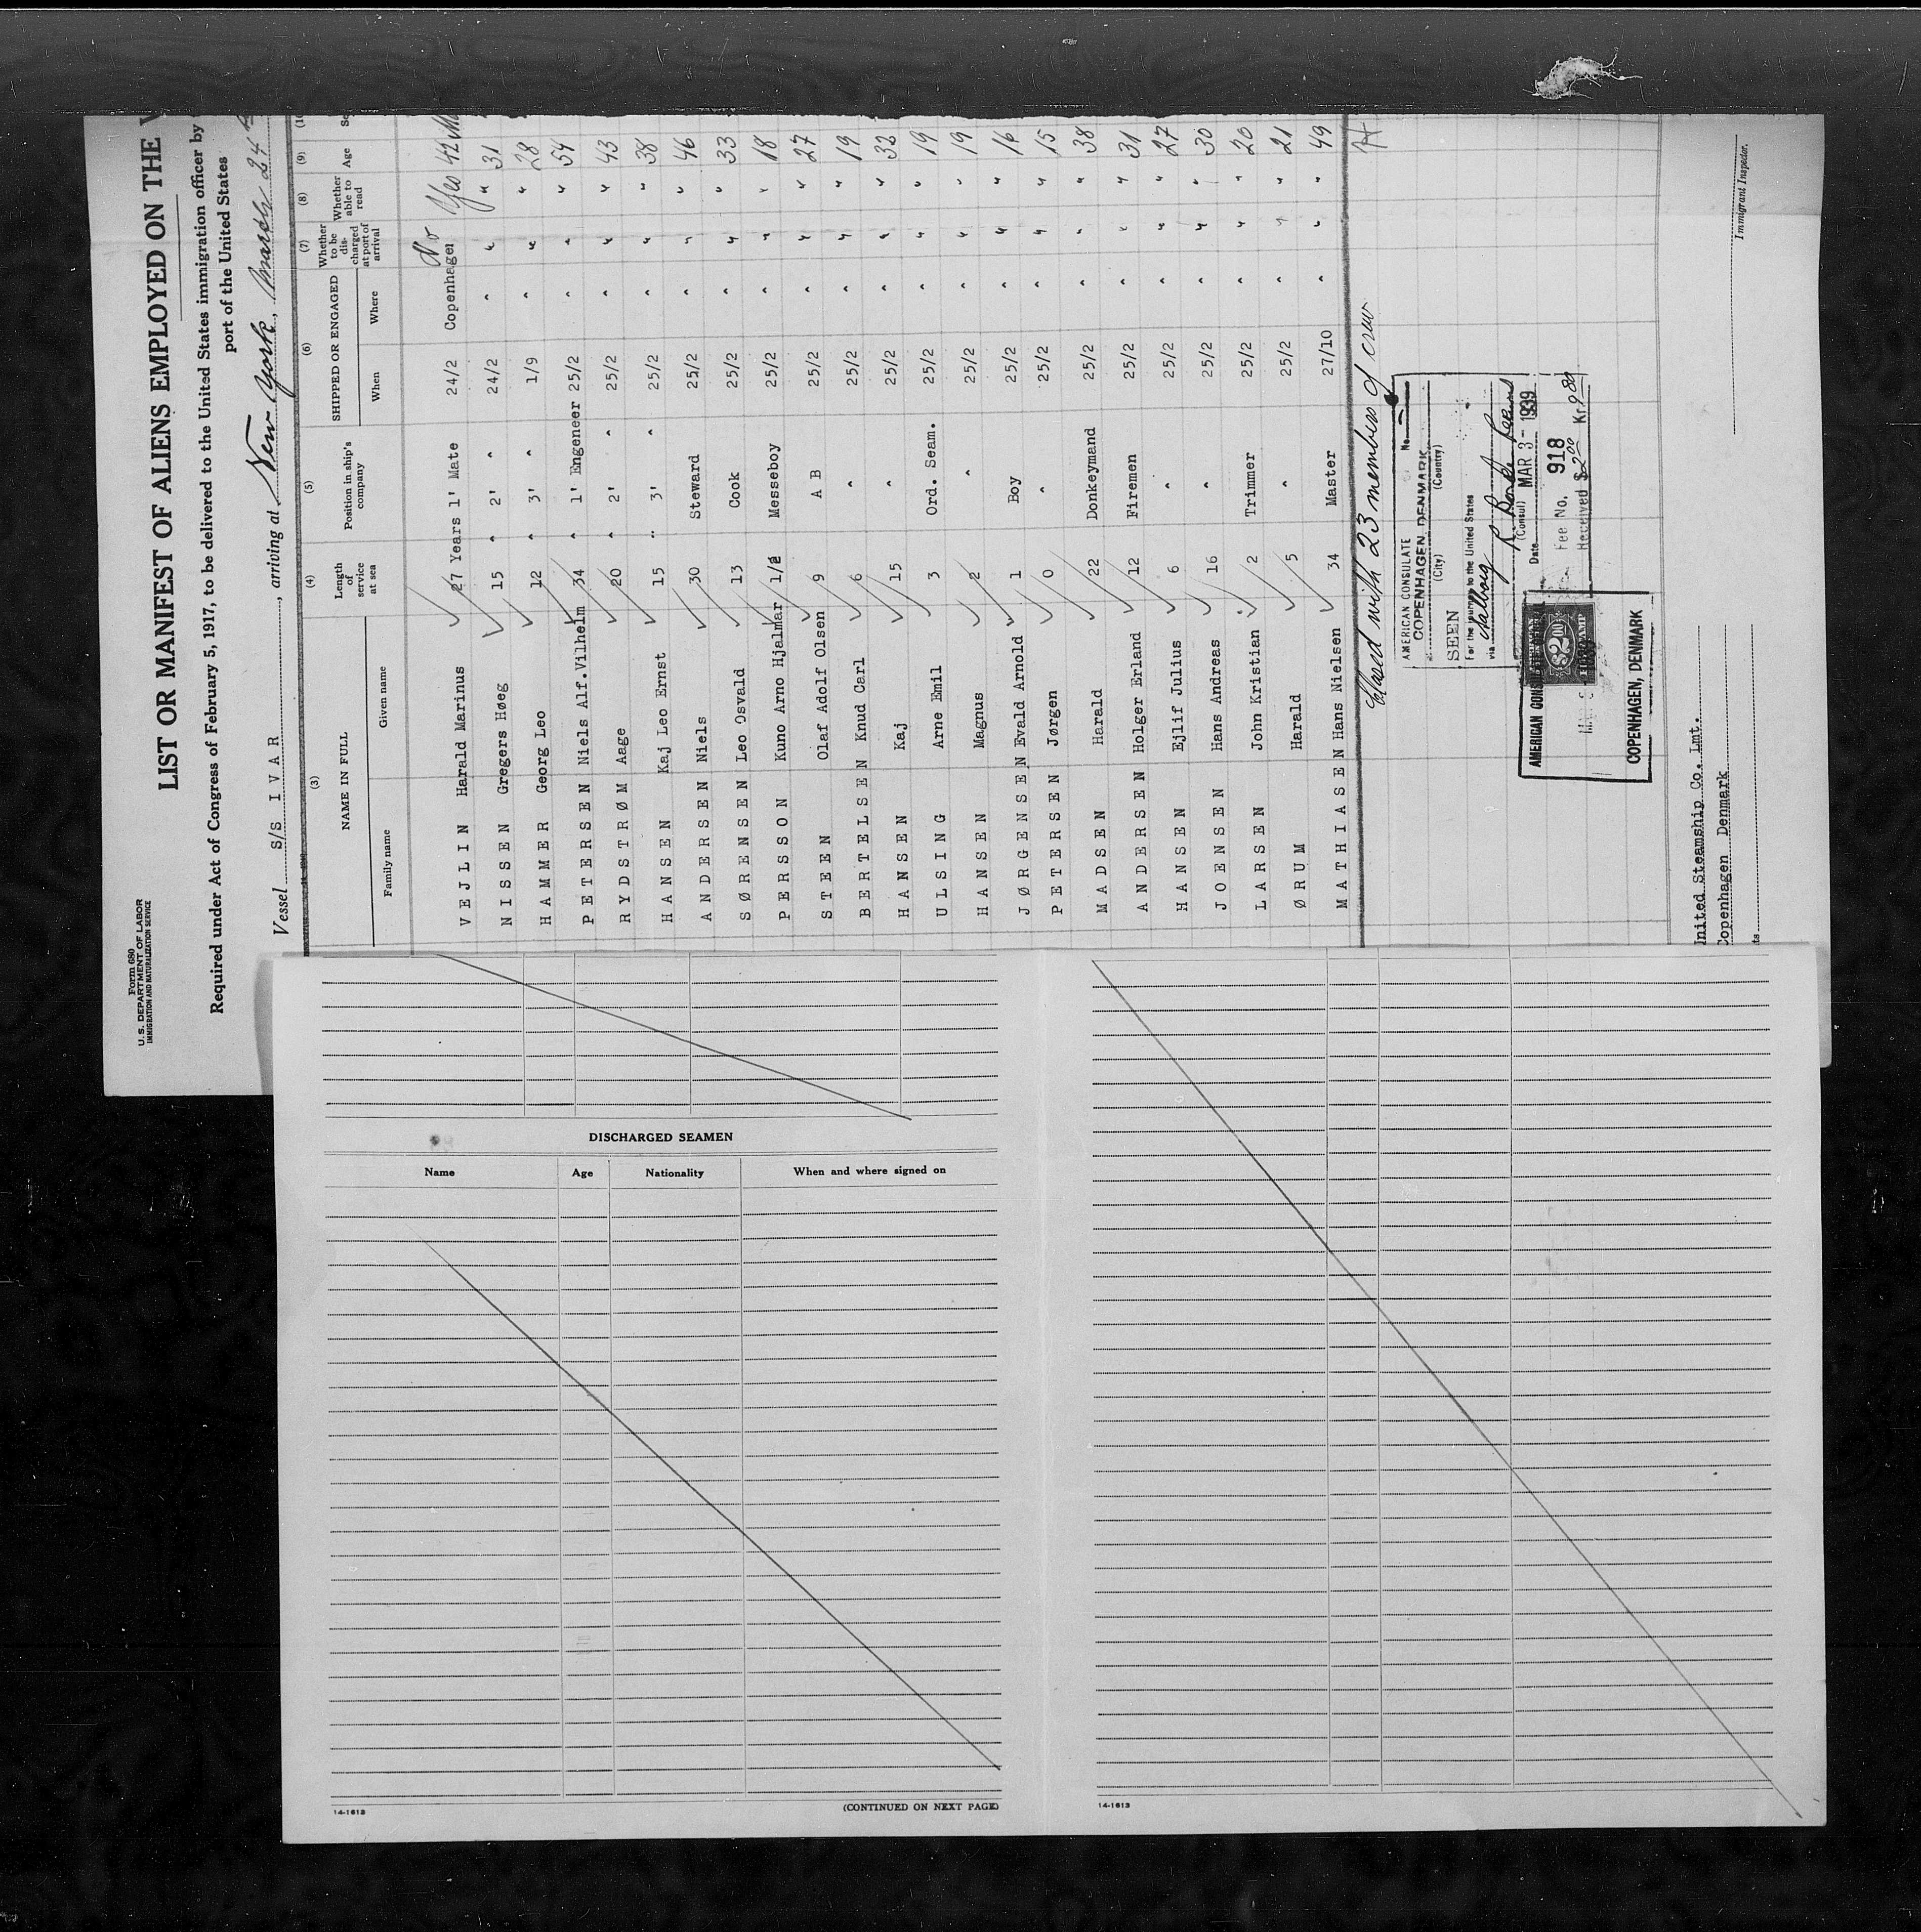 Form 680
U. S. DEPARTMENT OF LABOR
IMMIGRATION AND NATURALIZATION SERVICE
LIST OR MANIFEST OF ALIENS EMPLOYED ON THE
Required under Act of Congress of February 5, 1917, to be delivered to the United States immigration officer by
port of the United States
Vessel S/s IVAR, arriving at New York, March 24
(3) (4) (5) (6) (7) (8) (9)
NAME IN FULL Length of service at sea Position in ship's company SHIPPED OR ENGAGED Whether to be discharged at port of arrival Whether able to read Age
Family name Given name When Where
VEJLIN Harald Marinus 27 Years 1' Mate 24/2 Copenhagen No Yes 42
NISSEN Gregers Høeg 15 " 2' " 24/2 " " " 31
HAMMER Georg Leo 12 " 3' " 1/9 " " " 28
PETERSEN Niels Alf.Vilhelm 34 " 1' Engener 25/2 " " " 54
RYDSTRØM Aage 20 " 2' " 25/2 " " " 43
HANSEN Kaj Leo Ernst 15 " 3' " 25/2 " " " 38
ANDERSEN Niels 30 Steward 25/2 " " " 46
SØRENSEN Leo Osvald 13 Cook 25/2 " " " 33
PERSSON Kuno Arno Hjalmar 1/2 Messeboy 25/2 " " " 18
STEEN Olaf Adolf Olsen 9 A B 25/2 " " " 27
BERTELSEN Knud Carl 6 " 25/2 " " " 19
HANSEN Kaj 15 " 25/2 " " " 32
ULSING Arne Emil 3 Ord. Seam. 25/2 " " " 19
HANSEN Magnus 2 " 25/2 " " " 19
JØRGENSEN Evald Arnold 1 Boy 25/2 " " " 16
PETERSEN Jørgen 0 " 25/2 " " " 15
MADSEN Harald 22 Donkeymand 25/2 " " " 38
ANDERSEN Holger Erland 12 Firemen 25/2 " " " 31
HANSEN Ejlif Julius 6 " 25/2 " " " 27
JOENSEN Hans Andreas 16 " 25/2 " " " 30
LARSEN John Kristian 2 Trimmer 25/2 " " " 20
ØRUM Harald 5 " 25/2 " " " 21
MATHIASEN Hans Nielsen 34 Master 27/10 " " " 49
Closed with 23 members of crew
AMERICAN CONSULATE No.
COPENHAGEN, DENMARK
(City) (Country)
SEEN
For the journey to the United States
via Aalborg
(Consul)
Date MAR 3 - 1939
Fee No. 918
Received $2.00 Kr.
$2.00
AMERICAN CONSULATE GENERAL
COPENHAGEN, DENMARK
United Steamship Co. Lmt.
Copenhagen Denmark
Immigrant Inspector.
DISCHARGED SEAMEN
Name Age Nationality When and where signed on
14-1613 (CONTINUED ON NEXT PAGE)
14-1613